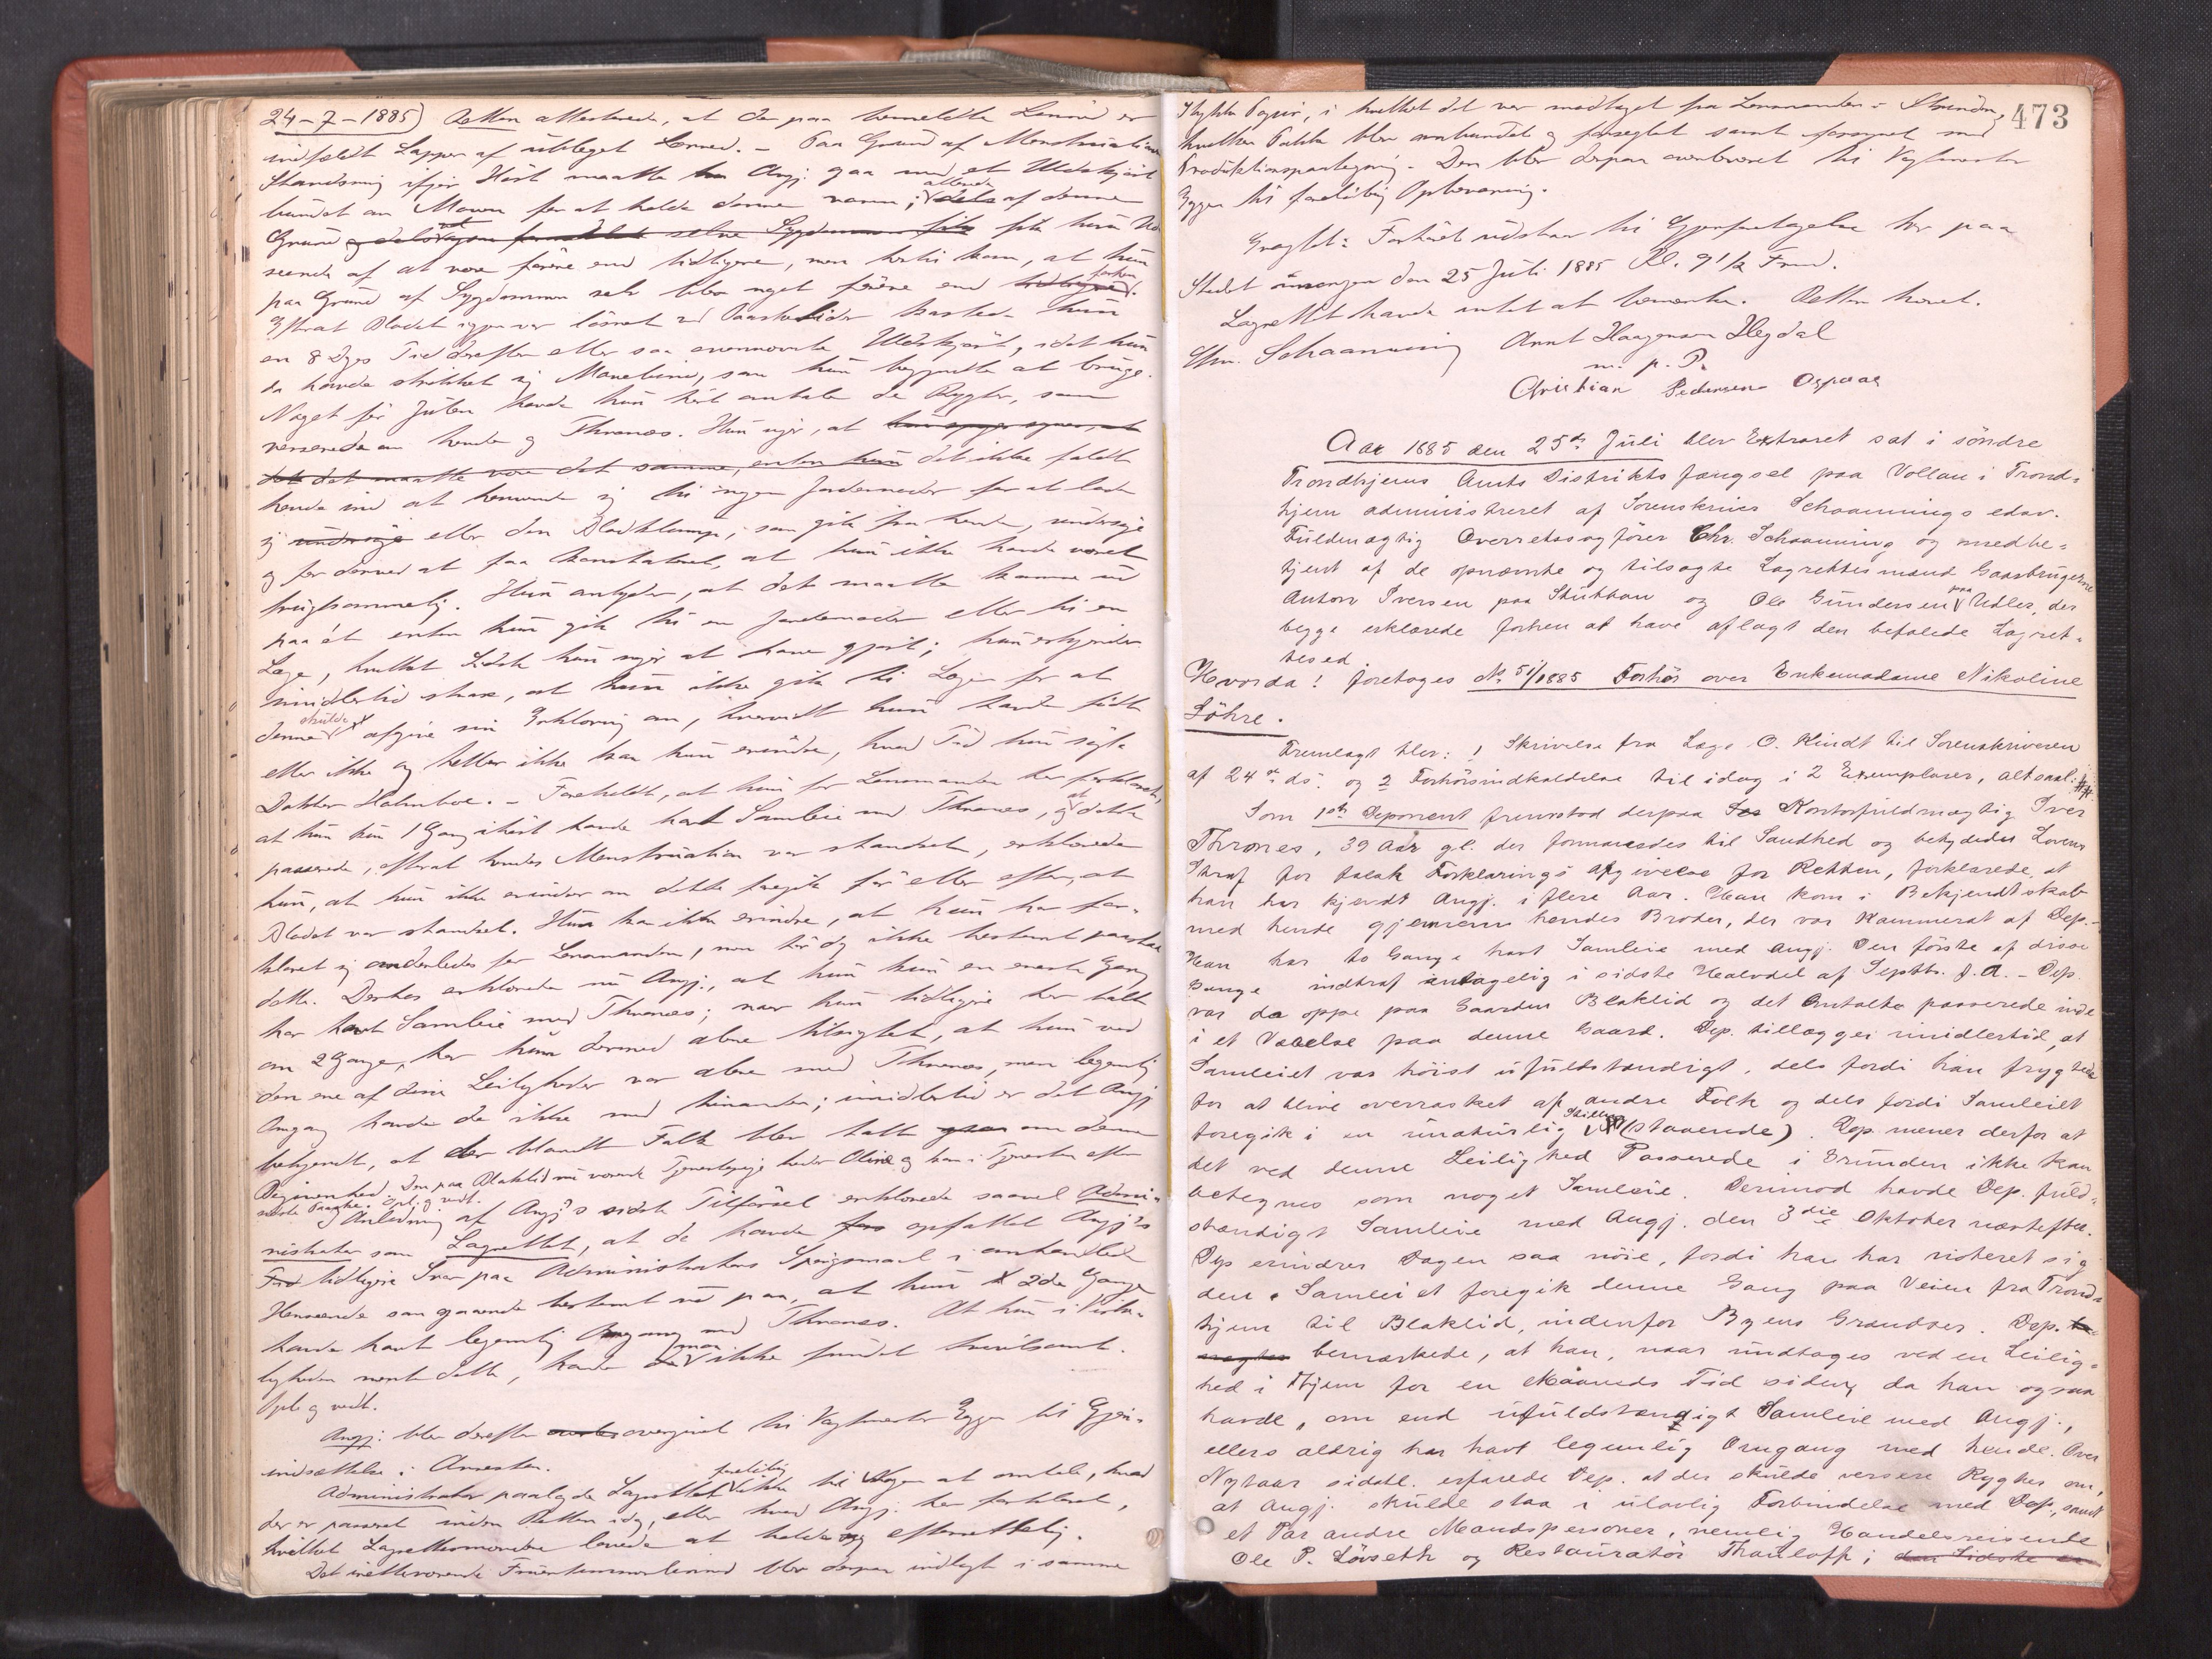 24-7-1885) Retten attesterede, at de paa bemeldte Linned er
indfældt Lapper af ubleget Lerred. - Paa Grund af Menstruations
Standsning ifjor Høst maatte hun Angj. gaa med et Uldskjørt
bundet om Maven for at holde denne varm; allerede dels af denne
Grund og dels selve Sygdommen fik hun Ud-
seende af at være førere end tidligere, men hertil kom, at hun
paa Grund af Sygdommen selv blev noget førere end tidligere forhen.
Efterat Blodet igjen var løsnet ved Paasketider kastede hun
en 8 Dages Tid derefter eller saa ovennævnte Uldskjørt, idet hun
da havde strikket sig Mavelinn, som hun begyndte at bruge.
Noget før Julen havde hun hørt omtale de Rygter, som
verserede om hende og Thrones. Hun siger, at
det maatte være det samme, enten hun det ikke faldt
hende ind at henvende sig til nogen Jordemoder for at lade
sig undersøge eller den Blodklump, som gik fra hende, undersøge
og for derved at faa konstateret, at hun ikke havde været
frugtsommelig. Hun antyder, at det maatte komme ud
paa ét enten hun gik til en Jordemoder eller til en
Læge, hvilket Sidste hun siger at have gjort; hun erkjender
imidlertid strax, at hun ikke gik til Lægen for at
denne skulde afgive sin Erklæring om, hvorvidt hun havde født
eller ikke og heller ikke kan hun erindre, hvad Tid hun søgte
Doktor Holmboe. - Foreholdt, at hun for Lensmanden har forklaret,
at hun kun 1 Gang ihøst havde havt Samleie med Thrones, og at dette
passerede, efterat hendes Menstruation var standset, erklærede
hun, at hun ikke erindrer om dette foregik før eller efter, at
Blodet var standset. Hun kan ikke erindre, at hun har for-
klaret sig anderledes for Lensmanden, men tør dog ikke bestemt paastaa
dette. Derhos erklærede nu Angj., at hun kun en eneste Gang
har havt Samleie med Thrones; naar hun tidligere har talt
om 2 Gange, har hun dermed alene tilsigtet, at hun ved
den ene af disse Leiligheder var alene med Thrones, men legemlig
Omgang havde de ikke med hinanden; imidlertid er det Angj.
bekjendt, at der blandt Folk blev talt om denne
Begivenhed. Den paa Blaklid nu værende Tjenestepige heder Oline og kom i Tjenesten efter
sidste Paaske. Opl. og vedt.
I Anledning af Angj.'s sidste Tilførsel erklærede saavel Admi-
nistrator som Lagrettet, at de havde opfattet Angj's
tidligere Svar paa Administrators Spørgsmaal i omhandlet
Henseende som gaaende bestemt ud paa, at hun 2de Gange
havde havt legemlig Omgang med Thrones. At hun i Virke-
ligheden mente dette, havde man ikke fundet tvivlsomt.
Opl. og vedt.
Angj. blev derefter overgivet til Vagtmester Egge til Gjen-
indsættelse i Arresten.
Administrator paalagde Lagrettet foreløbig ikke til Nogen at omtale, hvad
der er passeret inden Retten idag, eller hvad Angj. har forklaret,
hvilket Lagrettesmændene lovede at holde sig efterrettelig.
Det irettevarende Fruentimmerlinned blev derpaa indlagt i samme
473
Stykke Papir, i hvilket det var modtaget fra Lensmanden i Strinden,
hvilken Pakke blev ombundet og forseglet samt forsynet med
Produktionspaategning. Den blev derpaa overleveret til Vagtmester
Egge til foreløbig Opbevaring.
Eragtet: Forhøret udstaar til Gjenforetagelse her paa
Stedet imorgen den 25 Juli 1885 Kl. 9 1/2 Fmd.
Lagrettet havde intet at bemærke. Retten hævet.
Chr. Schaanning Arnt Haagensen Hegdal
m. p. P.
Christian Pedersen Ospaas
Aar 1885 den 25de Juli blev Extraret sat i søndre
Trondhjems Amts Distriktsfængsel paa Vollan i Trond-
hjem administreret af Sorenskriver Schaannings edsv.
Fuldmægtig Overretssagfører Chr. Schaanning og medbe-
tjent af de opnævnte og tilsagte Lagrettesmænd Gaardbrugerne
Anton Iversen paa Stubban og Ole Gundersen paa Udler, der
begge erklærede forhen at have aflagt den befalede Lagret-
tesed
Hvorda! foretoges No 51/1885 Forhør over Enkemadame Nikoline
Löhre.
Fremlagt blev: 1 Skrivelse fra Læge O. Klindt til Sorenskriveren
af 24de ds. og 2 Forhørsindkaldelse til idag i 2 Exemplarer, altsaal:
Som 1ste Deponent fremstod derpaa Kontorfuldmægtig Iver
Thrones, 39 Aar gl. der formanedes til Sandhed og betydedes Lovens
Straf for falsk Forklarings Afgivelse for Retten, forklarede, at
han har kjendt Angj. i flere Aar. Han kom i Bekjendtskab
med hende gjennem hendes Broder, der var Kammerat af Dep. -
Han har to Gange havt Samleie med Angj. Den første af disse
Gange indtraf antagelig i sidste Halvdel af Septbr. f. A. - Dep.
var da oppe paa Gaarden Blaklid og det Omtalte passerede inde
i et Værelse paa denne Gaard. Dep. tillægger imidlertid, at
Samleiet var høist ufuldstændigt, dels fordi han frygtede
for at blive overrasket af andre Folk og dels fordi Samleiet
foregik i en unaturlig Stilling (staaende). Dep. mener derfor at
det ved denne Leilighed Passerede i Grunden ikke kan
betegnes som noget Samleie. Derimod havde Dep. fuld-
stændigt Samleie med Angj. den 3die Oktober næstefter.
Dep erindrer Dagen saa nøie, fordi han har noteret sig
den. Samleiet foregik denne Gang paa Veien fra Trond-
hjem til Blaklid, indenfor Byens Grændser. Dep.
bemærkede, at han, naar undtages ved en Leilig-
hed i Thjem for en Maaneds Tid siden, da han ogsaa
havde, om end ufuldstændigt Samleie med Angj.,
ellers aldrig har havt legemlig Omgang med hende. Over
Nytaar sidstl. erfarede Dep. at der skulde versere Rygter om,
at Angj. skulde staa i ulovlig Forbindelse med Dep., samt
et Par andre Mandspersoner, nemlig Handelsreisende
Ole P. Lövseth og Restauratör Thauloff; den Sidste er